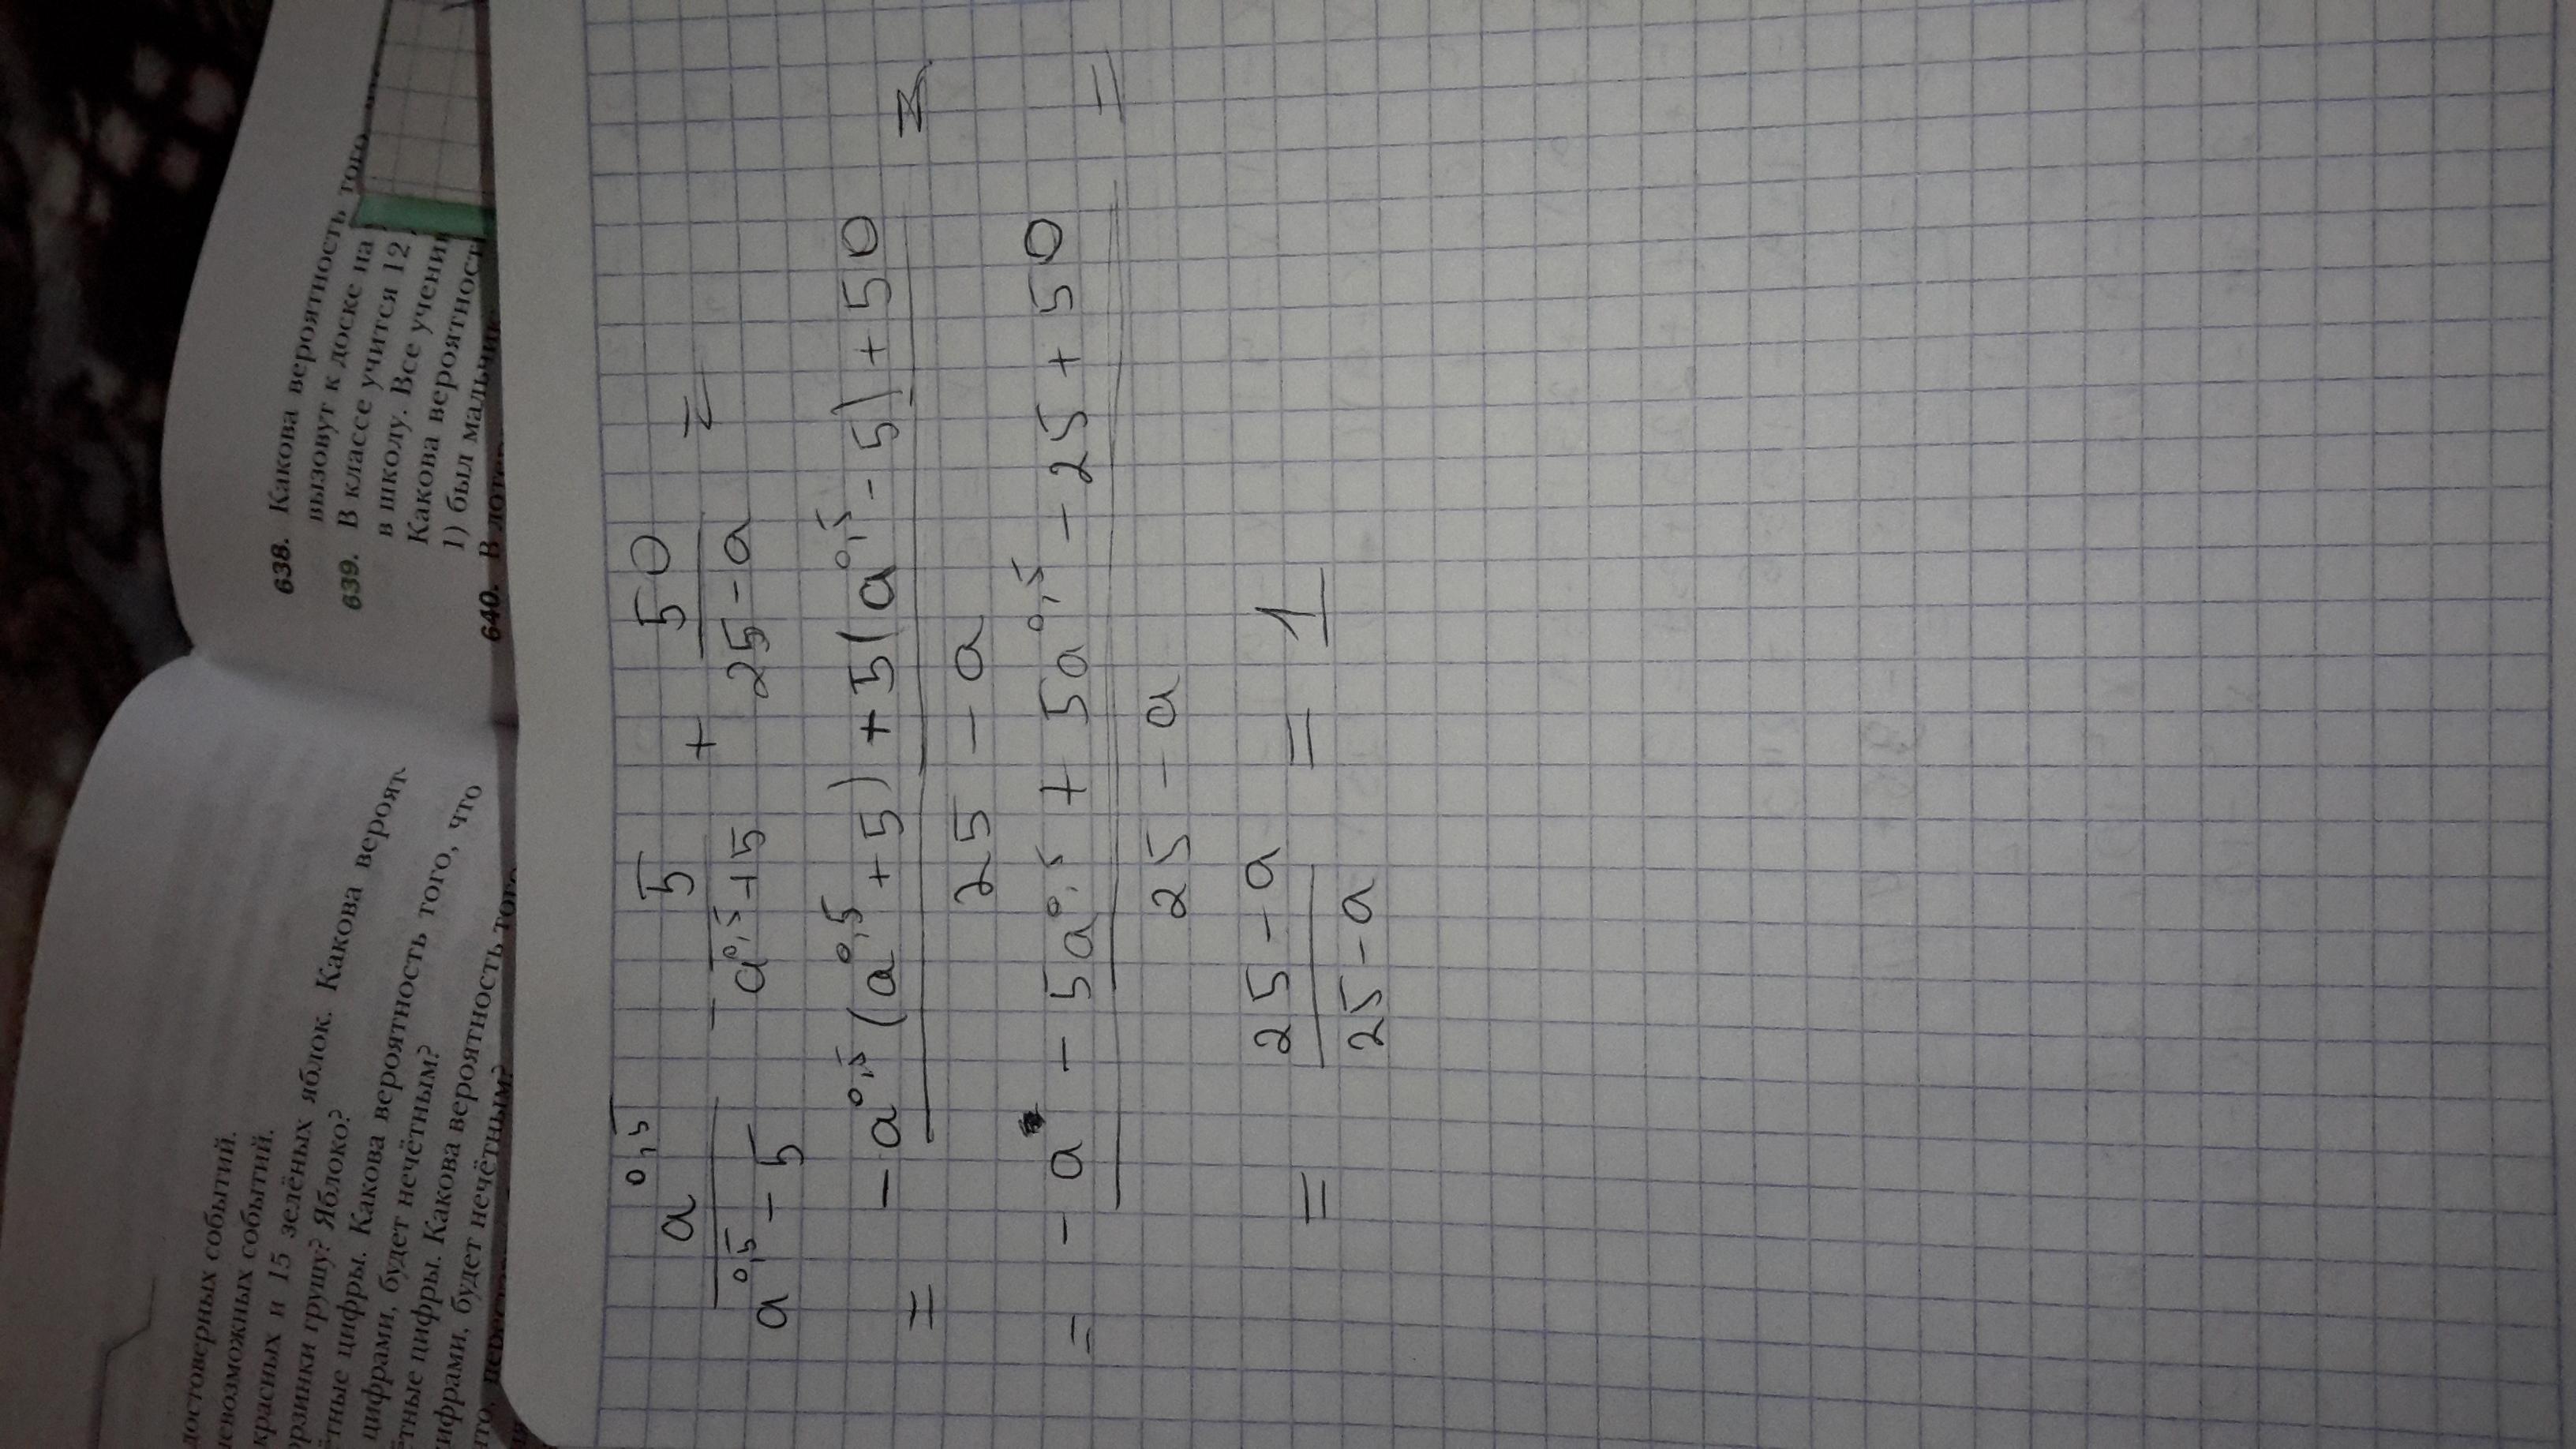 достоверных событий.
невозможных событий.
красных и 15 зелёных яблок. Какова вероят
грушу? Яблоко?
цифры. Какова вероятность того, что
цифрами, будет нечётным?
цифры. Какова вероятность того,
цифрами, будет нечётным?
638. Какова вероятность того
вызовут к доске на
639. В классе учится 12
в школу. Все учени
Какова вероятност
1) был мальчик
640. В
a^0,5 / (a^0,5 - 5) - 5 / (a^0,5 + 5) + 50 / (25 - a) =
= (-a^0,5 (a^0,5 + 5) + 5(a^0,5 - 5) + 50) / (25 - a) =
= (-a - 5a^0,5 + 5a^0,5 - 25 + 50) / (25 - a) =
= (25 - a) / (25 - a) = 1